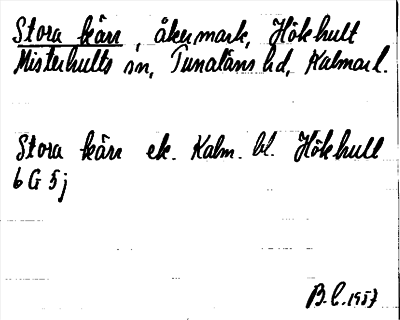 Stora kärr, åkermark, Hökhult
Misterhults sn, Tunaläns hd, Kalmar l.
Stora kärr ek. Kalm. bl. Hökhult
6 G 5 j
B.C. 1957